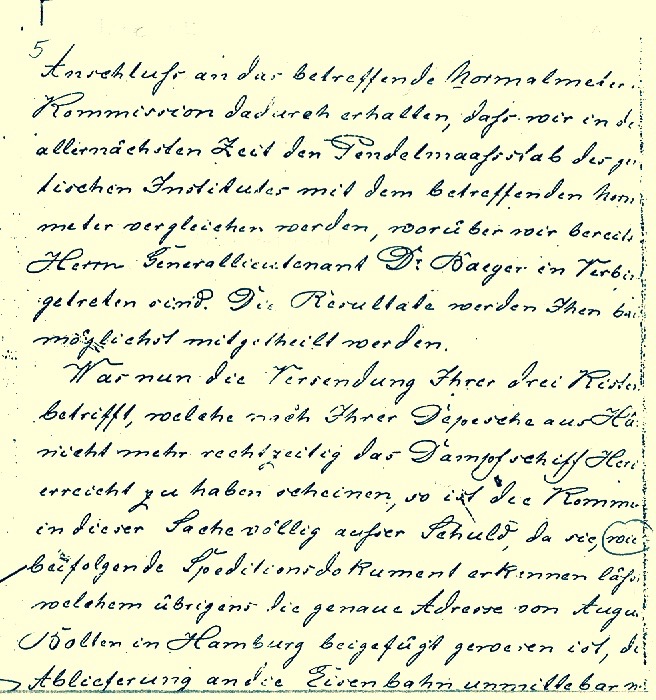 5
Anschluß an das betreffende Normalmeter
Kommission dadurch erhalten, daß wir in de
allernächsten Zeit den Pendelmaaßstab des ge
tischen Institutes mit dem betreffenden Nor
meter vergleichen werden, worüber wir bereits
Herrn Generallieutenant Dr Baeyer in Verbin
getreten sind. Die Resultate werden Ihen ba
möglichst mitgetheilt werden.
Was nun die Versendung Ihrer drei Kisten
betrifft, welche nach Ihrer Depesche aus Ha
nicht mehr rechtzeitig das Dampfschiff Her
erreicht zu haben scheinen, so ist die Komm
in dieser Sache völlig außer Schuld, da sie, wie
beifolgende Speditionsdokument erkennen läß
welchem übrigens die genaue Adresse von Augu
Bolten in Hamburg beigefügt gewesen ist, di
Ablieferung an die Eisenbahn unmittelbar n